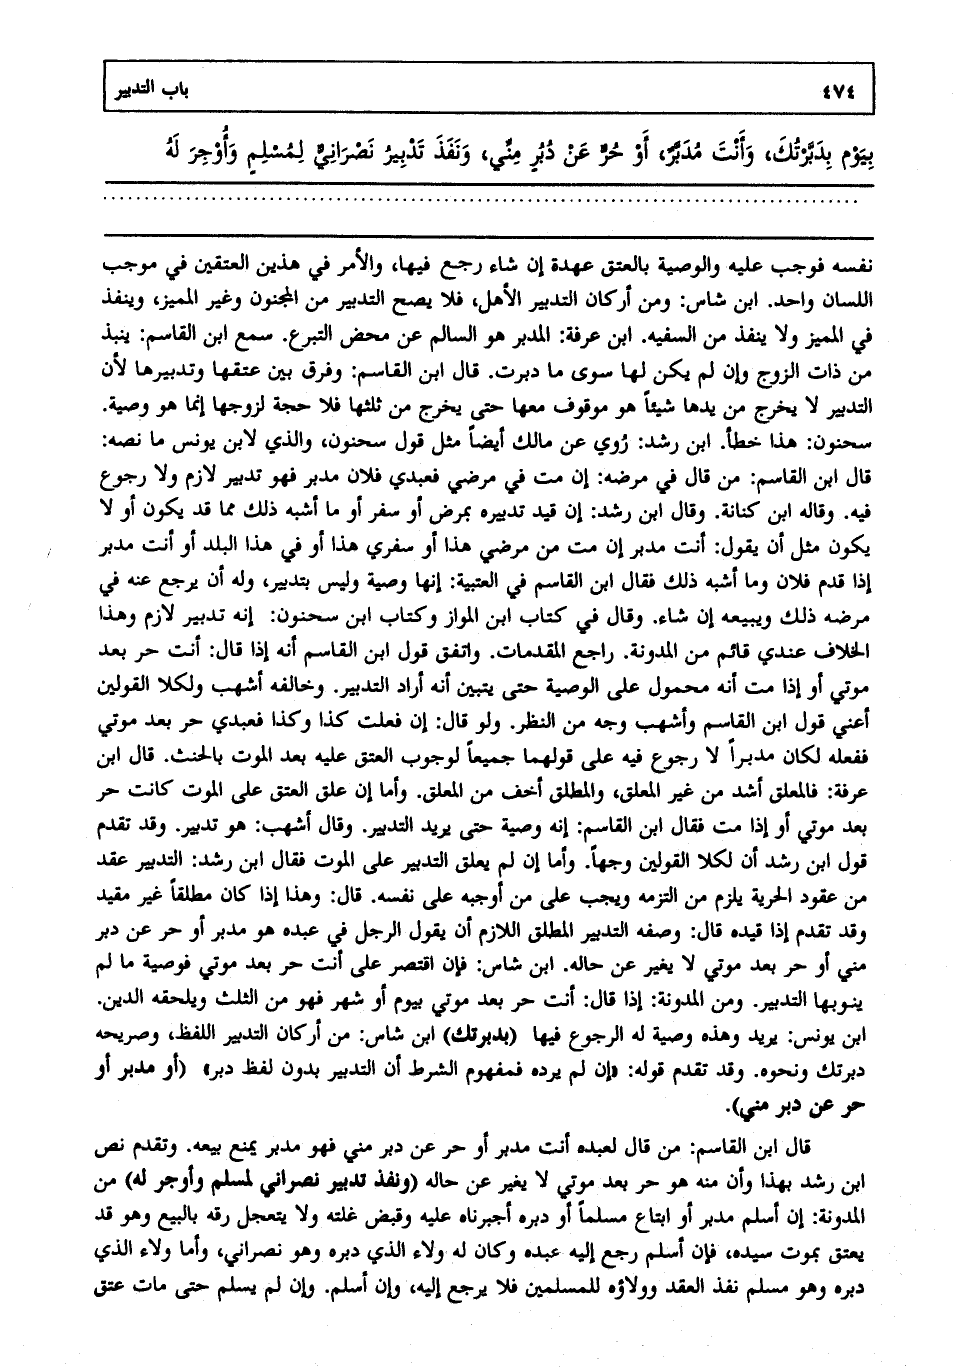 ٤٧٤ باب التدبير
بِيَوْمِ بِدَبَّرْتُكَ، وَأَنْتَ مُدَبَّرٌ، أَوْ حُرٌّ عَنْ دُبُرٍ مِنِّي، وَنَفَذَ تَدْبِيرُ نَصْرَانِيٍّ لِمُسْلِمٍ وَأُوْجِرَ لَهُ
نفسه فوجب عليه والوصية بالعتق عهدة إن شاء رجع فيها، والأمر في هذين العتقين في موجب
اللسان واحد. ابن شاس: ومن أركان التدبير الأهل، فلا يصح التدبير من المجنون وغير المميز، وينفذ
في المميز ولا ينفذ من السفيه. ابن عرفة: المدبر هو السالم عن محض التبرع. سمع ابن القاسم: ينبذ
من ذات الزوج وإن لم يكن لها سوى ما دبرت. قال ابن القاسم: وفرق بين عتقها وتدبيرها لأن
التدبير لا يخرج من يدها شيئاً هو موقوف معها حتى يخرج من ثلثها فلا حجة لزوجها إنما هو وصية.
سحنون: هذا خطأ. ابن رشد: رُوي عن مالك أيضاً مثل قول سحنون، والذي لابن يونس ما نصه:
قال ابن القاسم: من قال في مرضه: إن مت في مرضي فعبدي فلان مدبر فهو تدبير لازم ولا رجوع
فيه. وقاله ابن كنانة. وقال ابن رشد: إن قيد تدبيره بمرض أو سفر أو ما أشبه ذلك مما قد يكون أو لا
يكون مثل أن يقول: أنت مدبر إن مت من مرضي هذا أو سفري هذا أو في هذا البلد أو أنت مدبر
إذا قدم فلان وما أشبه ذلك فقال ابن القاسم في العتبية: إنها وصية وليس بتدبير، وله أن يرجع عنه في
مرضه ذلك ويبيعه إن شاء. وقال في كتاب ابن المواز وكتاب ابن سحنون: إنه تدبير لازم وهذا
الخلاف عندي قائم من المدونة. راجع المقدمات. واتفق قول ابن القاسم أنه إذا قال: أنت حر بعد
موتي أو إذا مت أنه محمول على الوصية حتى يتبين أنه أراد التدبير. وخالفه أشهب ولكلا القولين
أعني قول ابن القاسم وأشهب وجه من النظر. ولو قال: إن فعلت كذا وكذا فعبدي حر بعد موتي
ففعله لكان مدبراً لا رجوع فيه على قولهما جميعاً لوجوب العتق عليه بعد الموت بالحنث. قال ابن
عرفة: فالمعلق أشد من غير المعلق، والمطلق أخف من المعلق. وأما إن علق العتق على الموت كانت حر
بعد موتي أو إذا مت فقال ابن القاسم: إنه وصية حتى يريد التدبير. وقال أشهب: هو تدبير. وقد تقدم
قول ابن رشد أن لكلا القولين وجهاً. وأما إن لم يعلق التدبير على الموت فقال ابن رشد: التدبير عقد
من عقود الحرية يلزم من التزمه ويجب على من أوجبه على نفسه. قال: وهذا إذا كان مطلقاً غير مقيد
وقد تقدم إذا قيده قال: وصفه التدبير المطلق اللازم أن يقول الرجل في عبده هو مدبر أو حر عن دبر
مني أو حر بعد موتي لا يغير عن حاله. ابن شاس: فإن اقتصر على أنت حر بعد موتي فوصية ما لم
ينوبها التدبير. ومن المدونة: إذا قال: أنت حر بعد موتي بيوم أو شهر فهو من الثلث ويلحقه الدين.
ابن يونس: يريد وهذه وصية له الرجوع فيها (بدبرتك) ابن شاس: من أركان التدبير اللفظ، وصريحه
دبرتك ونحوه. وقد تقدم قوله: «إن لم يرده فمفهوم الشرط أن التدبير بدون لفظ دبر» (أو مدبر أو
حر عن دبر مني).
قال ابن القاسم: من قال لعبده أنت مدبر أو حر عن دبر مني فهو مدبر يمنع بيعه. وتقدم نص
ابن رشد بهذا وأن منه هو حر بعد موتي لا يغير عن حاله (ونفذ تدبير نصراني لمسلم وأوجر له) من
المدونة: إن أسلم مدبر أو ابتاع مسلماً أو دبره أجبرناه عليه وقبض غلته ولا يتعجل رقه بالبيع وهو قد
يعتق بموت سيده، فإن أسلم رجع إليه عبده وكان له ولاء الذي دبره وهو نصراني، وأما ولاء الذي
دبره وهو مسلم نفذ العقد وولاؤه للمسلمين فلا يرجع إليه، وإن أسلم. وإن لم يسلم حتى مات عتق